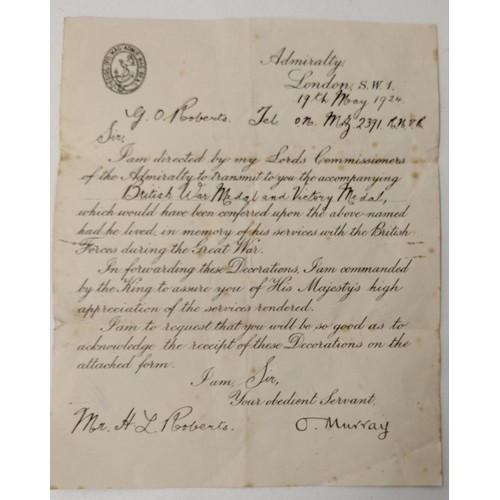 Admiralty,
London, S.W.1.
19th May 1924.
G. O. Roberts. Tel. O.N. MZ 2391 R.N.V.R.
Sir,
I am directed by my Lords Commissioners
of the Admiralty to transmit to you the accompanying
British War Medal and Victory Medal,
which would have been conferred upon the above named
had he lived, in memory of his services with the British
Forces during the Great War.
In forwarding these Decorations, I am commanded
by the King to assure you of His Majesty's high
appreciation of the services rendered.
I am to request that you will be so good as to
acknowledge the receipt of these Decorations on the
attached form.
I am, Sir,
Your obedient Servant,
Mr. H. L. Roberts. O. Murray